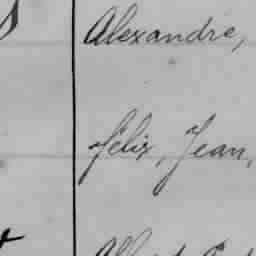 Alexandre,
Félix, Jean,